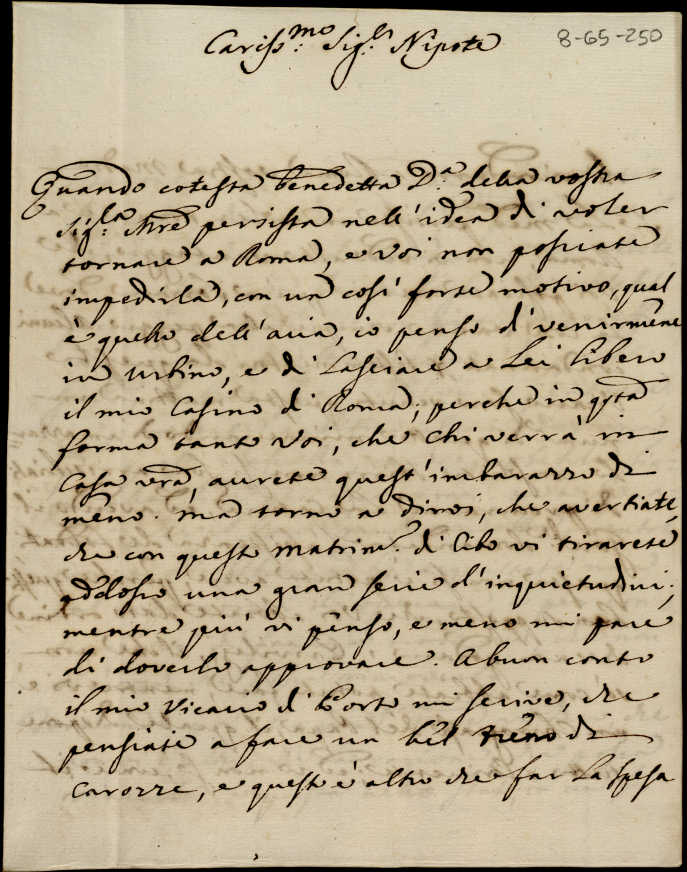 Cariss.mo Sig.r Nipote
8-65-250
Quando cotesta benedetta D.a della vostra
Sig.la Mrē persista nell'idea di voler
tornare a Roma, e voi non possiate
impedirla, con un così forte motivo, qual
è quello dell'aria, io penso di venirmēne
in Urbino, e di lasciare a Lei libero
il mio Casino di Roma; perche in qstā
forma tanto Voi, che chi verrà in
Casa vrā, aurete quest'imbarazzo di
mēno. Ma torno a dirvi, che avertiate,
che con questo Matrim.o di Cibo vi tirarete
addosso una gran serie d'inquietudini;
mentre più vi pēnso, e meno mi pare
di doverlo approvare. A buon conto
il mio Vicario di Porto mi scrive, che
pensiate a fare un bēl trēno di
Carozze, e questo è altro che far la spesa